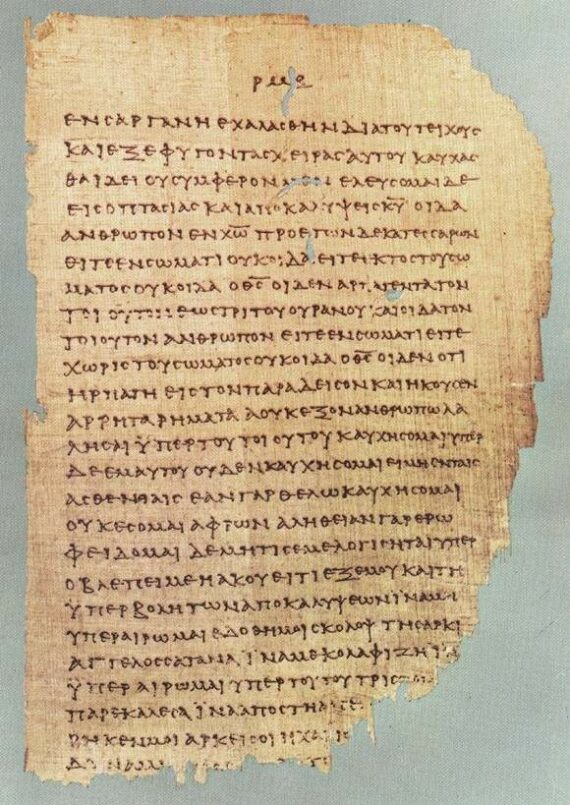 ΡΜΘ
ΕΝ ΣΑΡΓΑΝΗ ΕΧΑΛΑΣΘΗΝ ΔΙΑ ΤΟΥ ΤΕΙΧΟΥΣ
ΚΑΙ ΕΞΕΦΥΓΟΝ ΤΑΣ ΧΕΙΡΑΣ ΑΥΤΟΥ ΚΑΥΧΑΣ
ΘΑΙ ΔΕΙ ΟΥ ΣΥΜΦΕΡΟΝ ΜΕΝ ΕΛΕΥΣΟΜΑΙ ΔΕ
ΕΙΣ ΟΠΤΑΣΙΑΣ ΚΑΙ ΑΠΟΚΑΛΥΨΕΙΣ Κ̅Υ̅ ΟΙΔΑ
ΑΝΘΡΩΠΟΝ ΕΝ Χ̅Ω̅ ΠΡΟ ΕΤΩΝ ΔΕΚΑΤΕΣΣΑΡΩΝ
ΕΙΤΕ ΕΝ ΣΩΜΑΤΙ ΟΥΚ ΟΙΔΑ ΕΙΤΕ ΕΚΤΟΣ ΤΟΥ ΣΩ
ΜΑΤΟΣ ΟΥΚ ΟΙΔΑ Ο Θ̅Σ̅ ΟΙΔΕΝ ΑΡΠΑΓΕΝΤΑ ΤΟΝ
ΤΟΙΟΥΤΟΝ ΕΩΣ ΤΡΙΤΟΥ ΟΥΡΑΝΟΥ ΚΑΙ ΟΙΔΑ ΤΟΝ
ΤΟΙΟΥΤΟΝ ΑΝΘΡΩΠΟΝ ΕΙΤΕ ΕΝ ΣΩΜΑΤΙ ΕΙΤΕ
ΧΩΡΙΣ ΤΟΥ ΣΩΜΑΤΟΣ ΟΥΚ ΟΙΔΑ Ο Θ̅Σ̅ ΟΙΔΕΝ ΟΤΙ
ΗΡΠΑΓΗ ΕΙΣ ΤΟΝ ΠΑΡΑΔΕΙΣΟΝ ΚΑΙ ΗΚΟΥΣΕΝ
ΑΡΡΗΤΑ ΡΗΜΑΤΑ Α ΟΥΚ ΕΞΟΝ ΑΝΘΡΩΠΩ ΛΑ
ΛΗΣΑΙ ΫΠΕΡ ΤΟΥ ΤΟΙΟΥΤΟΥ ΚΑΥΧΗΣΟΜΑΙ ΥΠΕΡ
ΔΕ ΕΜΑΥΤΟΥ ΟΥΔΕΝ ΚΑΥΧΗΣΟΜΑΙ ΕΙ ΜΗ ΕΝ ΤΑΙΣ
ΑΣΘΕΝΕΙΑΙΣ ΕΑΝ ΓΑΡ ΘΕΛΩ ΚΑΥΧΗΣΟΜΑΙ
ΟΥΚ ΕΣΟΜΑΙ ΑΦΡΩΝ ΑΛΗΘΕΙΑΝ ΓΑΡ ΕΡΩ
ΦΕΙΔΟΜΑΙ ΔΕ ΜΗ ΤΙΣ ΕΜΕ ΛΟΓΙΣΗΤΑΙ ΥΠΕΡ
Ο ΒΛΕΠΕΙ ΜΕ Η ΑΚΟΥΕΙ ΤΙ ΕΞ ΕΜΟΥ ΚΑΙ ΤΗ
ΫΠΕΡΒΟΛΗ ΤΩΝ ΑΠΟΚΑΛΥΨΕΩΝ ΪΝΑ ΜΗ
ΥΠΕΡΑΙΡΩΜΑΙ ΕΔΟΘΗ ΜΟΙ ΣΚΟΛΟΨ ΤΗ ΣΑΡΚΙ
ΑΓΓΕΛΟΣ ΣΑΤΑΝΑ ΪΝΑ ΜΕ ΚΟΛΑΦΙΖΗ ΪΝΑ
ΫΠΕΡΑΙΡΩΜΑΙ ΥΠΕΡ ΤΟΥΤΟΥ ΤΡΙΣ
ΠΑΡΕΚΑΛΕΣΑ ΪΝΑ ΑΠΟΣΤΗ
ΡΗΚΕΝ ΜΟΙ ΑΡΚΕΙ ΣΟΙ Η ΧΑΡΙΣ